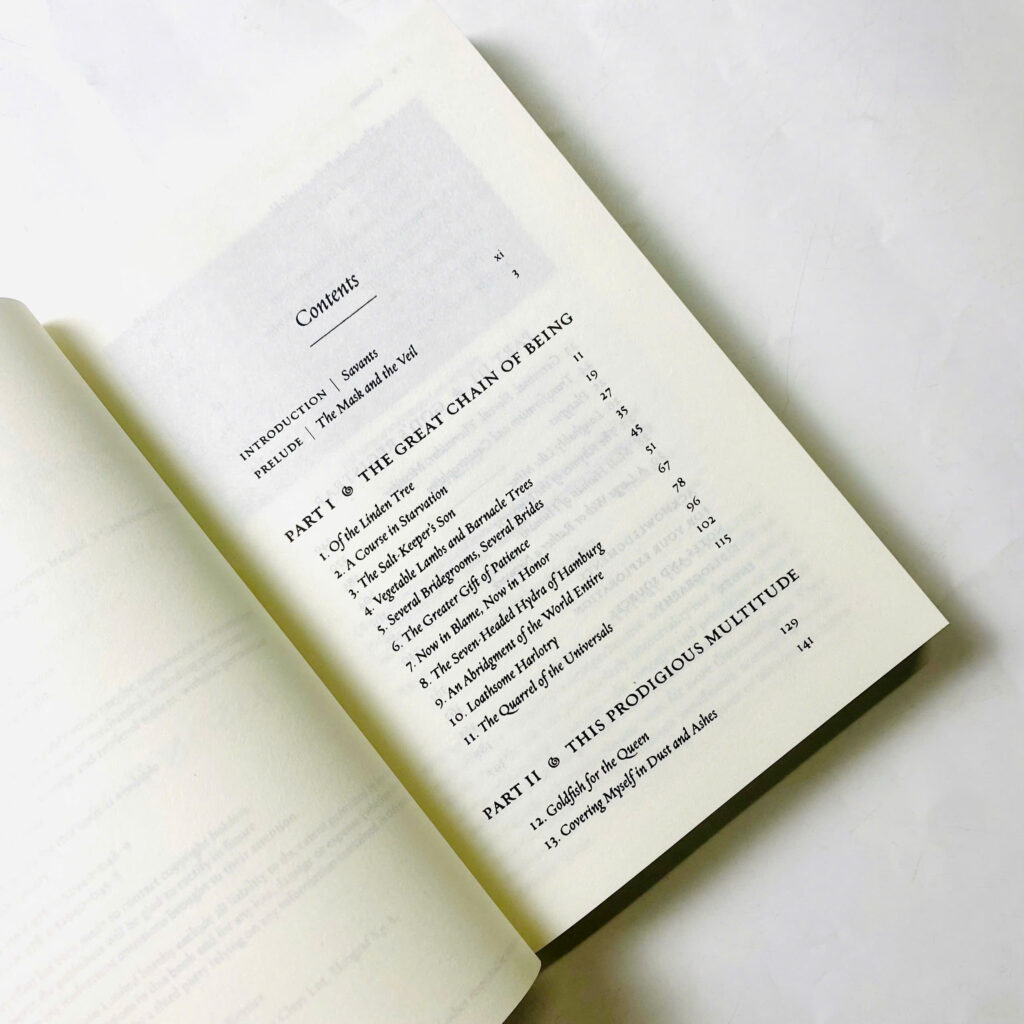 Contents
INTRODUCTION | Savants xi
PRELUDE | The Mask and the Veil 3
PART I & THE GREAT CHAIN OF BEING
1. Of the Linden Tree 11
2. A Course in Starvation 19
3. The Salt-Keeper's Son 27
4. Vegetable Lambs and Barnacle Trees 35
5. Several Bridegrooms, Several Brides 45
6. The Greater Gift of Patience 51
7. Now in Blame, Now in Honor 67
8. The Seven-Headed Hydra of Hamburg 78
9. An Abridgment of the World Entire 96
10. Loathsome Harlotry 102
11. The Quarrel of the Universals 115
PART II & THIS PRODIGIOUS MULTITUDE
12. Goldfish for the Queen 129
13. Covering Myself in Dust and Ashes 141